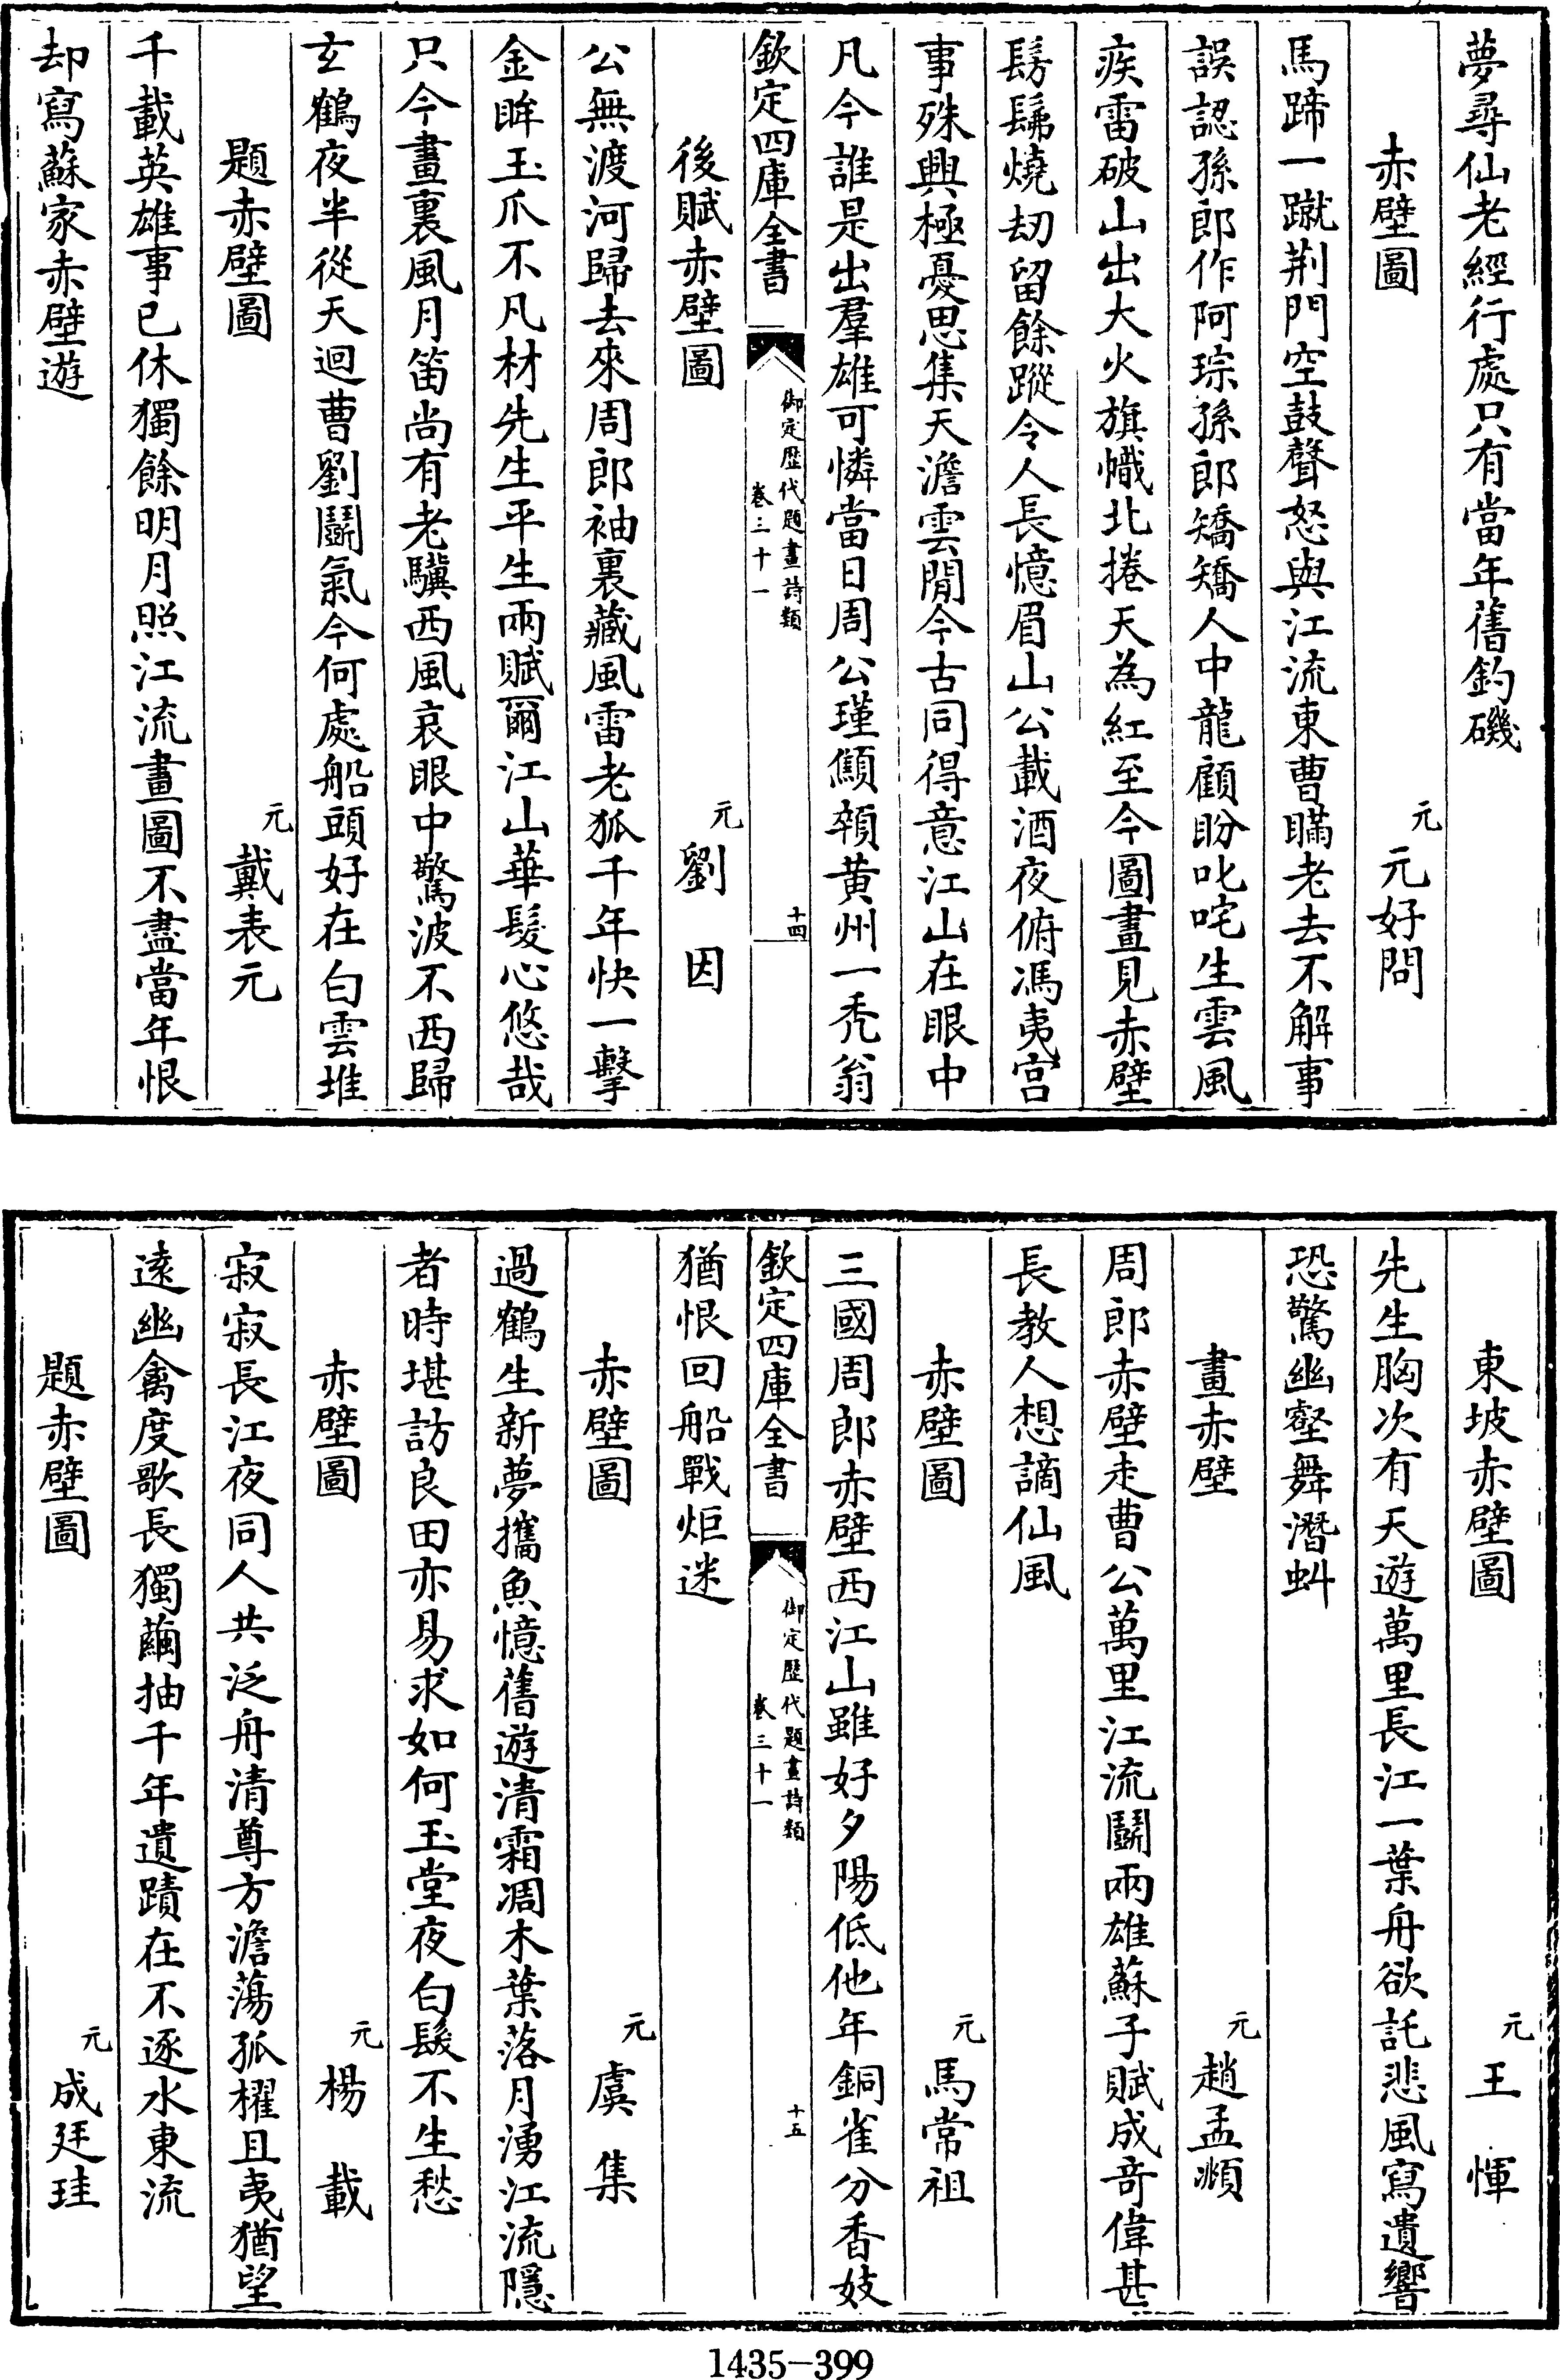 夢尋仙老經行處只有當年舊釣磯
赤壁圖 元 元好問
馬蹄一蹴荆門空鼓聲怒與江流東曹瞞老去不解事
誤認孫郎作阿琮孫郎矯矯人中龍顧盼叱咤生雲風
疾雷破山出大火旗幟北捲天為紅至今圖畫見赤壁
髣髴燒刼留餘蹤令人長憶眉山公載酒夜俯馮夷宫
事殊興極憂思集天澹雲閒今古同得意江山在眼中
凡今誰是出羣雄可憐當日周公瑾顦顇黄州一禿翁
欽定四庫全書 御定歷代題畫詩類 卷三十一 十四
後賦赤壁圖 元 劉因
公無渡河歸去來周郎袖裏藏風雷老狐千年快一擊
金眸玉爪不凡材先生平生兩賦爾江山華髮心悠哉
只今畫裏風月笛尚有老驥西風哀眼中驚波不西歸
玄鶴夜半從天迴曹劉鬭氣今何處船頭好在白雲堆
題赤壁圖 元 戴表元
千載英雄事已休獨餘明月照江流畫圖不盡當年恨
却寫蘇家赤壁遊
東坡赤壁圖 元 王惲
先生胸次有天遊萬里長江一葉舟欲託悲風寫遺響
恐驚幽壑舞潛虯
畫赤壁 元 趙孟頫
周郎赤壁走曹公萬里江流鬭兩雄蘇子賦成竒偉甚
長教人想謫仙風
赤壁圖 元 馬常祖
三國周郎赤壁西江山雖好夕陽低他年銅雀分香妓
猶恨回船戰炬迷
欽定四庫全書 御定歷代題畫詩類 卷三十一 十五
赤壁圖 元 虞集
過鶴生新夢攜魚憶舊遊清霜凋木葉落月湧江流隱
者時堪訪良田亦易求如何玉堂夜白髮不生愁
赤壁圖 元 楊載
寂寂長江夜同人共泛舟清尊方澹蕩孤櫂且夷猶望
遠幽禽度歌長獨繭抽千年遺蹟在不逐水東流
題赤壁圖 元 成廷珪
1435-399